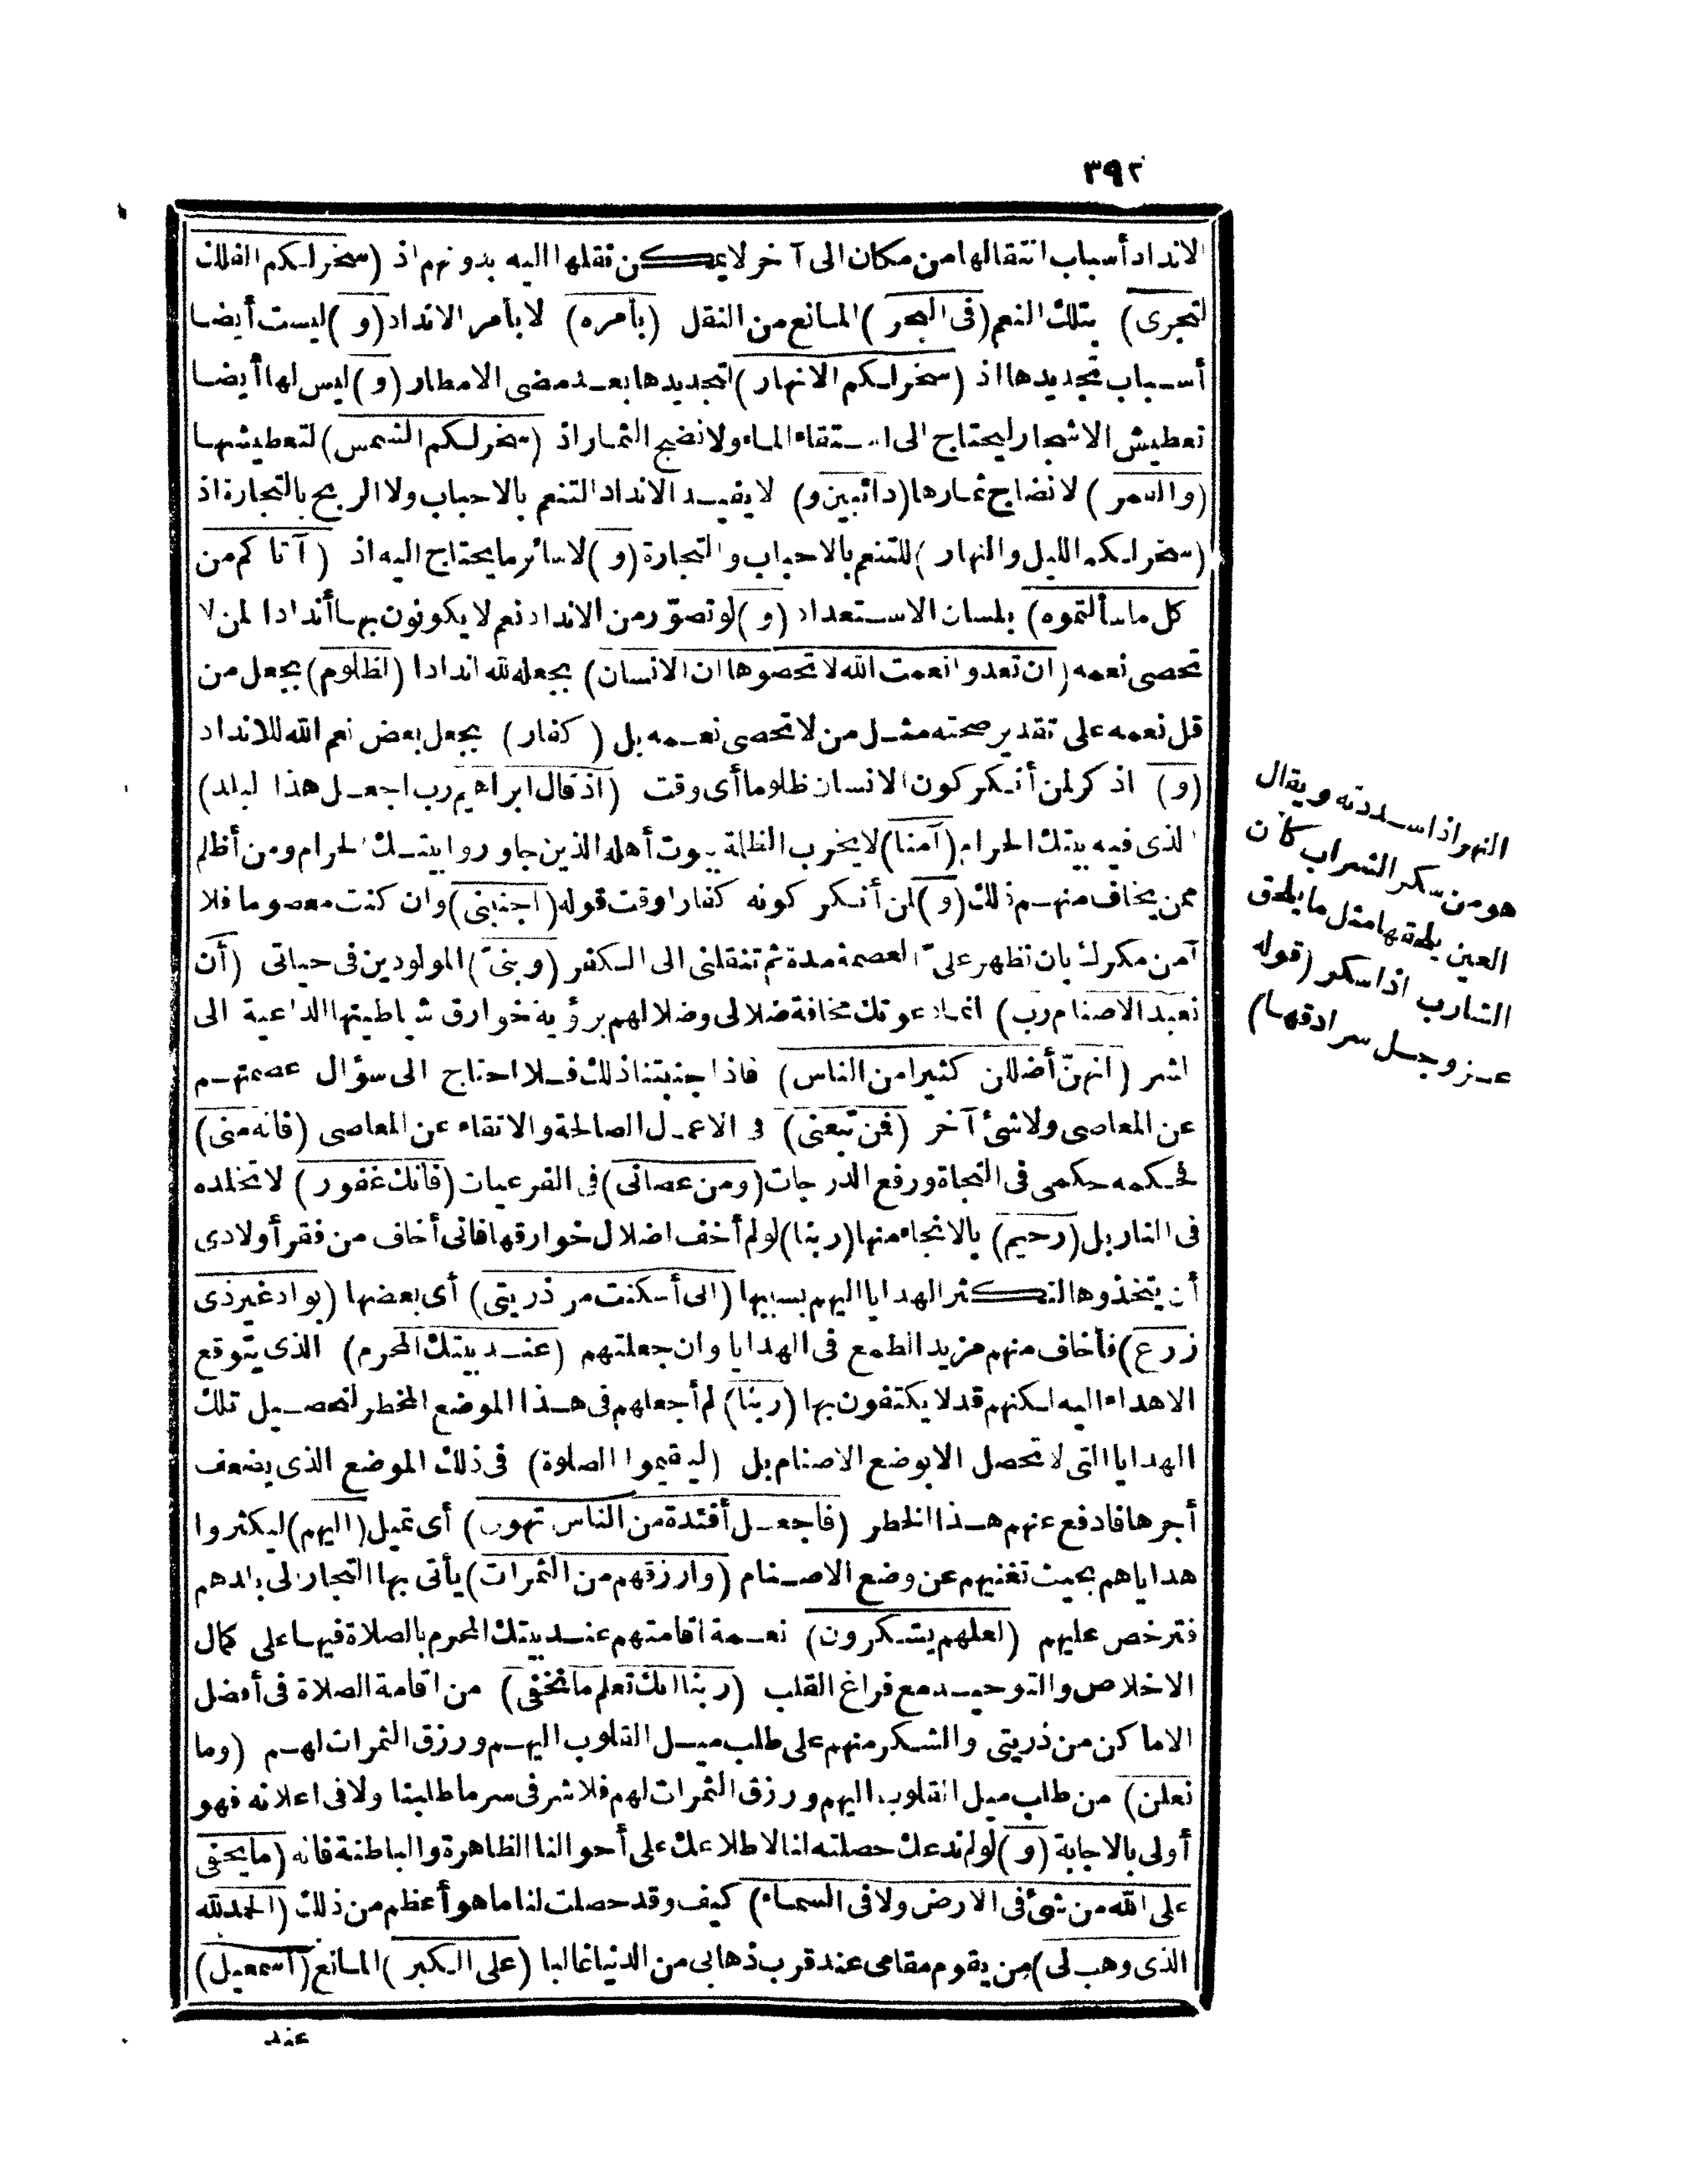 ٣٩٢
الانداد أسباب انتقالها من مكان الى آخر لا يمكن نقلها اليه بدونهم اذ (سخر لكم الفلك
لتجرى) بتلك النعم (فى البحر) المانع من النقل (بأمره) لا بأمر الانداد (و) ليست أيضا
أسباب تجديدها اذ (سخر لكم الانهار) لتجديدها بعد مضى الامطار (و) ليس لها أيضا
تعطيش الاشجار ليحتاج الى استقاء الماء ولا نضج الثمار اذ (سخر لكم الشمس) لتعطيشها
(والقمر) لانضاج ثمارها (دائبين و) لا يفيد الانداد التنعم بالاحباب ولا الربح بالتجارة اذ
(سخر لكم الليل والنهار) للتنعم بالاحباب والتجارة (و) لا سائر ما يحتاج اليه اذ (آتاكم من
كل ما سألتموه) بلسان الاستعداد (و) لو تصوّر من الانداد نعم لا يكونون بها أندادا لمن لا
تحصى نعمه (ان تعدوا نعمت الله لا تحصوها ان الانسان) بجعله لله اندادا (لظلوم) بجعل من
قل نعمه على تقدير صحته مثل من لا تحصى نعمه بل (كفار) بجعل بعض نعم الله للانداد
(و) اذكر لمن أنكر كون الانسان ظلوما أى وقت (اذ قال ابراهيم رب اجعل هذا البلد)
الذى فيه بيتك الحرام (آمنا) لا يخرب الظلمة بيوت أهله الذين جاوروا بيتك الحرام ومن أظلم
ممن يخاف منهم ذلك (و) لمن أنكر كونه كفارا وقت قوله (اجنبنى) وان كنت معصوما فلا
آمن مكرك بان تظهر علىّ العصمة مدة ثم تنقلنى الى الكفر (وبنىّ) المولودين فى حياتى (أن
نعبد الاصنام رب) انما دعوتك مخافة ضلالى وضلالهم برؤية خوارق شياطينها الداعية الى
الشر (انهنّ أضللن كثيرا من الناس) فاذا جنبتنا ذلك فلا احتاج الى سؤال عصمتهم
عن المعاصى ولا شئ آخر (فمن تبعنى) فى الاعمال الصالحة والاتقاء عن المعاصى (فانه منى)
فحكمه حكمى فى النجاة ورفع الدرجات (ومن عصانى) فى الفرعيات (فانك غفور) لا تخلده
فى النار بل (رحيم) بالانجاء منها (ربنا) لو لم أخف اضلال خوارقها فانى أخاف من فقر أولادى
أن يتخذوها لتكثر الهدايا اليهم بسببها (انى أسكنت من ذريتى) أى بعضها (بواد غير ذى
زرع) فأخاف منهم مزيد الطمع فى الهدايا وان جعلتهم (عند بيتك المحرم) الذى يتوقع
الاهداء اليه لكنهم قد لا يكتفون بها (ربنا) لم أجعلهم فى هذا الموضع المخطر لتحصيل تلك
الهدايا التى لا تحصل الا بوضع الاصنام بل (ليقيموا الصلوة) فى ذلك الموضع الذى يضعف
أجرها فادفع عنهم هذا الخطر (فاجعل أفئدة من الناس تهوى) أى تميل (اليهم) ليكثروا
هداياهم بحيث تغنيهم عن وضع الاصنام (وارزقهم من الثمرات) يأتى بها التجار الى بلدهم
فترخص عليهم (لعلهم يشكرون) نعمة اقامتهم عند بيتك المحرم بالصلاة فيها على كمال
الاخلاص والتوحيد مع فراغ القلب (ربنا انك تعلم ما نخفى) من اقامة الصلاة فى أفضل
الاماكن من ذريتى والشكر منهم على طلب ميل القلوب اليهم ورزق الثمرات لهم (وما
نعلن) من طلب ميل القلوب اليهم ورزق الثمرات لهم فلا شر فى سر ما طلبنا ولا فى اعلانه فهو
أولى بالاجابة (و) لو لم ندعك حصلته لنا لاطلاعك على أحوالنا الظاهرة والباطنة فانه (ما يخفى
على الله من شئ فى الارض ولا فى السماء) كيف وقد حصلت لنا ما هو أعظم من ذلك (الحمد لله
الذى وهب لى) من يقوم مقامى عند قرب ذهابى من الدنيا غالبا (على الكبر) المانع (اسمعيل)
عند
النهر اذا سددته ويقال
هو من سكر الشراب كان
العين يلحقها مثل ما يلحق
الشارب اذا سكر (قوله
عز وجل سرادقها)